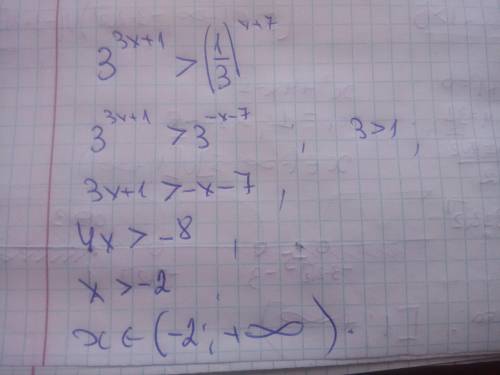 3^{3x+1} > (1/3)^{x+7}
3^{3x+1} > 3^{-x-7} , 3>1 ,
3x+1 > -x-7 ,
4x > -8 ,
x > -2 ,
x ∈ (-2; +∞).